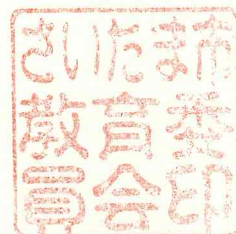 さいたま市
教育委
員会印